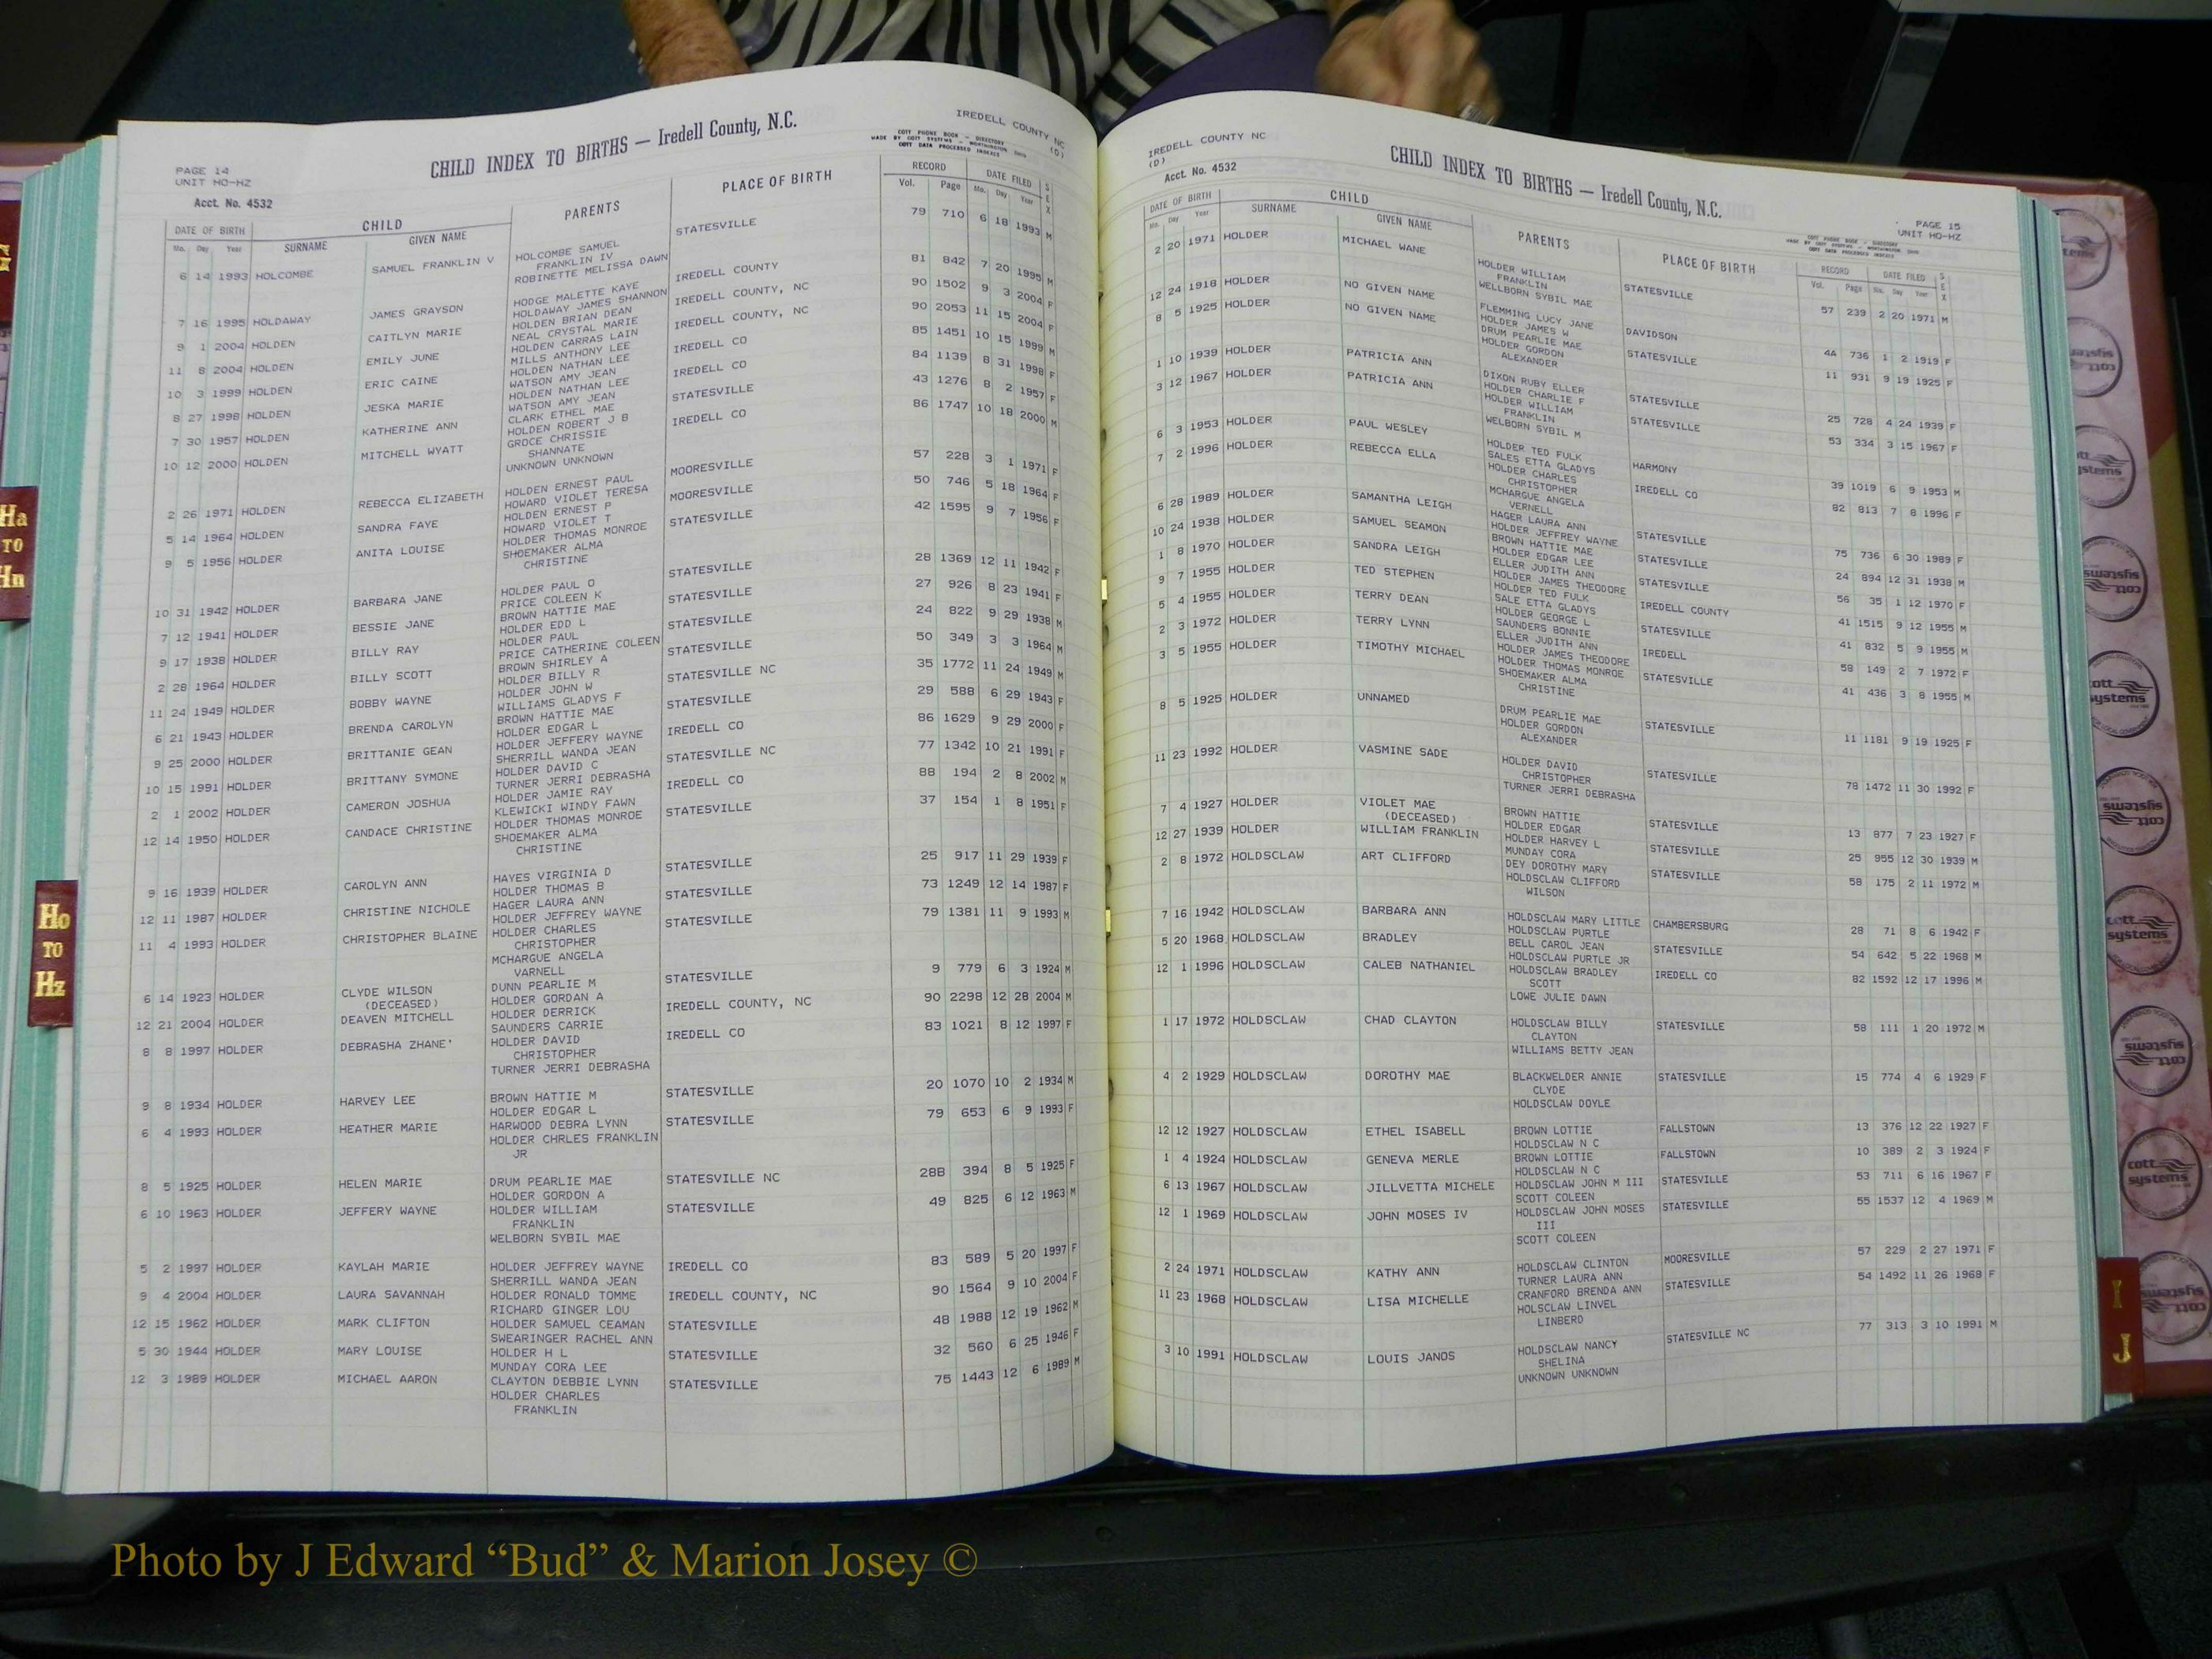 CHILD INDEX TO BIRTHS — Iredell County, N.C.
IREDELL COUNTY NC
(D)
COTT PHONE BOOK - DIRECTORY
MADE BY COTT SYSTEMS - WORTHINGTON OHIO
COTT DATA PROCESSED INDEXES
PAGE 14
UNIT HO-HZ
Acct. No. 4532
DATE OF BIRTH CHILD PARENTS PLACE OF BIRTH RECORD DATE FILED SEX
Mo. Day Year SURNAME GIVEN NAME Vol. Page Mo. Day Year
6 14 1993 HOLCOMBE SAMUEL FRANKLIN V HOLCOMBE SAMUEL STATESVILLE 79 710 6 18 1993 M
FRANKLIN IV
ROBINETTE MELISSA DAWN
7 16 1995 HOLDAWAY JAMES GRAYSON HODGE MALETTE KAYE IREDELL COUNTY 81 842 7 20 1995 M
HOLDAWAY JAMES SHANNON
9 1 2004 HOLDEN CAITLYN MARIE HOLDEN BRIAN DEAN IREDELL COUNTY, NC 90 1502 9 3 2004 F
NEAL CRYSTAL MARIE
11 8 2004 HOLDEN EMILY JUNE HOLDEN CARRAS LAIN IREDELL COUNTY, NC 90 2053 11 15 2004 F
MILLS ANTHONY LEE
10 3 1999 HOLDEN ERIC CAINE HOLDEN NATHAN LEE IREDELL CO 85 1451 10 15 1999 M
WATSON AMY JEAN
8 27 1998 HOLDEN JESKA MARIE HOLDEN NATHAN LEE IREDELL CO 84 1139 8 31 1998 F
WATSON AMY JEAN
7 30 1957 HOLDEN KATHERINE ANN CLARK ETHEL MAE STATESVILLE 43 1276 8 2 1957 F
HOLDEN ROBERT J B
10 12 2000 HOLDEN MITCHELL WYATT GROCE CHRISSIE IREDELL CO 86 1747 10 18 2000 M
SHANNATE
UNKNOWN UNKNOWN
2 26 1971 HOLDEN REBECCA ELIZABETH HOLDEN ERNEST PAUL MOORESVILLE 57 228 3 1 1971 F
HOWARD VIOLET TERESA
5 14 1964 HOLDEN SANDRA FAYE HOLDEN ERNEST P MOORESVILLE 50 746 5 18 1964 F
HOWARD VIOLET T
9 5 1956 HOLDER ANITA LOUISE HOLDER THOMAS MONROE STATESVILLE 42 1595 9 7 1956 F
SHOEMAKER ALMA
CHRISTINE
10 31 1942 HOLDER BARBARA JANE HOLDER PAUL O STATESVILLE 28 1369 12 11 1942 F
PRICE COLEEN K
7 12 1941 HOLDER BESSIE JANE BROWN HATTIE MAE STATESVILLE 27 926 8 23 1941 F
HOLDER EDD L
9 17 1938 HOLDER BILLY RAY HOLDER PAUL STATESVILLE 24 822 9 29 1938 M
PRICE CATHERINE COLEEN
2 28 1964 HOLDER BILLY SCOTT BROWN SHIRLEY A STATESVILLE 50 349 3 3 1964 M
HOLDER BILLY R
11 24 1949 HOLDER BOBBY WAYNE HOLDER JOHN W STATESVILLE NC 35 1772 11 24 1949 M
WILLIAMS GLADYS F
6 21 1943 HOLDER BRENDA CAROLYN BROWN HATTIE MAE STATESVILLE 29 588 6 29 1943 F
HOLDER EDGAR L
9 25 2000 HOLDER BRITTANIE GEAN HOLDER JEFFERY WAYNE IREDELL CO 86 1629 9 29 2000 F
SHERRILL WANDA JEAN
10 15 1991 HOLDER BRITTANY SYMONE HOLDER DAVID C STATESVILLE NC 77 1342 10 21 1991 F
TURNER JERRI DEBRASHA
2 1 2002 HOLDER CAMERON JOSHUA HOLDER JAMIE RAY IREDELL CO 88 194 2 8 2002 M
KLEWICKI WINDY FAWN
12 14 1950 HOLDER CANDACE CHRISTINE HOLDER THOMAS MONROE STATESVILLE 37 154 1 8 1951 F
SHOEMAKER ALMA
CHRISTINE
9 16 1939 HOLDER CAROLYN ANN HAYES VIRGINIA D STATESVILLE 25 917 11 29 1939 F
HOLDER THOMAS B
12 11 1987 HOLDER CHRISTINE NICHOLE HAGER LAURA ANN STATESVILLE 73 1249 12 14 1987 F
HOLDER JEFFREY WAYNE
11 4 1993 HOLDER CHRISTOPHER BLAINE HOLDER CHARLES STATESVILLE 79 1381 11 9 1993 M
CHRISTOPHER
MCHARGUE ANGELA
VARNELL
6 14 1923 HOLDER CLYDE WILSON DUNN PEARLIE M STATESVILLE 9 779 6 3 1924 M
(DECEASED) HOLDER GORDAN A
12 21 2004 HOLDER DEAVEN MITCHELL HOLDER DERRICK IREDELL COUNTY, NC 90 2298 12 28 2004 M
SAUNDERS CARRIE
8 8 1997 HOLDER DEBRASHA ZHANE' HOLDER DAVID IREDELL CO 83 1021 8 12 1997 F
CHRISTOPHER
TURNER JERRI DEBRASHA
9 8 1934 HOLDER HARVEY LEE BROWN HATTIE M STATESVILLE 20 1070 10 2 1934 M
HOLDER EDGAR L
6 4 1993 HOLDER HEATHER MARIE HARWOOD DEBRA LYNN STATESVILLE 79 653 6 9 1993 F
HOLDER CHRLES FRANKLIN
JR
8 5 1925 HOLDER HELEN MARIE DRUM PEARLIE MAE STATESVILLE NC 28B 394 8 5 1925 F
HOLDER GORDON A
6 10 1963 HOLDER JEFFERY WAYNE HOLDER WILLIAM STATESVILLE 49 825 6 12 1963 M
FRANKLIN
WELBORN SYBIL MAE
5 2 1997 HOLDER KAYLAH MARIE HOLDER JEFFREY WAYNE IREDELL CO 83 589 5 20 1997 F
SHERRILL WANDA JEAN
9 4 2004 HOLDER LAURA SAVANNAH HOLDER RONALD TOMME IREDELL COUNTY, NC 90 1564 9 10 2004 F
RICHARD GINGER LOU
12 15 1962 HOLDER MARK CLIFTON HOLDER SAMUEL CEAMAN STATESVILLE 48 1988 12 19 1962 M
SWEARINGER RACHEL ANN
5 30 1944 HOLDER MARY LOUISE HOLDER H L STATESVILLE 32 560 6 25 1946 F
MUNDAY CORA LEE
12 3 1989 HOLDER MICHAEL AARON CLAYTON DEBBIE LYNN STATESVILLE 75 1443 12 6 1989 M
HOLDER CHARLES
FRANKLIN
IREDELL COUNTY NC
(D)
Acct. No. 4532
CHILD INDEX TO BIRTHS — Iredell County, N.C.
PAGE 15
UNIT HO-HZ
COTT PHONE BOOK - DIRECTORY
MADE BY COTT SYSTEMS - WORTHINGTON OHIO
COTT DATA PROCESSED INDEXES
DATE OF BIRTH CHILD PARENTS PLACE OF BIRTH RECORD DATE FILED SEX
Mo. Day Year SURNAME GIVEN NAME Vol. Page Mo. Day Year
2 20 1971 HOLDER MICHAEL WANE HOLDER WILLIAM STATESVILLE 57 239 2 20 1971 M
FRANKLIN
WELLBORN SYBIL MAE
12 24 1918 HOLDER NO GIVEN NAME FLEMMING LUCY JANE DAVIDSON 4A 736 1 2 1919 F
HOLDER JAMES W
8 5 1925 HOLDER NO GIVEN NAME DRUM PEARLIE MAE STATESVILLE 11 931 9 19 1925 F
HOLDER GORDON
ALEXANDER
1 10 1939 HOLDER PATRICIA ANN DIXON RUBY ELLER STATESVILLE 25 728 4 24 1939 F
HOLDER CHARLIE F
3 12 1967 HOLDER PATRICIA ANN HOLDER WILLIAM STATESVILLE 53 334 3 15 1967 F
FRANKLIN
WELBORN SYBIL M
6 3 1953 HOLDER PAUL WESLEY HOLDER TED FULK HARMONY 39 1019 6 9 1953 M
SALES ETTA GLADYS
7 2 1996 HOLDER REBECCA ELLA HOLDER CHARLES IREDELL CO 82 813 7 8 1996 F
CHRISTOPHER
MCHARGUE ANGELA
VERNELL
6 28 1989 HOLDER SAMANTHA LEIGH HAGER LAURA ANN STATESVILLE 75 736 6 30 1989 F
HOLDER JEFFREY WAYNE
10 24 1938 HOLDER SAMUEL SEAMON BROWN HATTIE MAE STATESVILLE 24 894 12 31 1938 M
HOLDER EDGAR LEE
1 8 1970 HOLDER SANDRA LEIGH ELLER JUDITH ANN STATESVILLE 56 35 1 12 1970 F
HOLDER JAMES THEODORE
9 7 1955 HOLDER TED STEPHEN HOLDER TED FULK IREDELL COUNTY 41 1515 9 12 1955 M
SALE ETTA GLADYS
5 4 1955 HOLDER TERRY DEAN HOLDER GEORGE L STATESVILLE 41 832 5 9 1955 M
SAUNDERS BONNIE
2 3 1972 HOLDER TERRY LYNN ELLER JUDITH ANN IREDELL 58 149 2 7 1972 F
HOLDER JAMES THEODORE
3 5 1955 HOLDER TIMOTHY MICHAEL HOLDER THOMAS MONROE STATESVILLE 41 436 3 8 1955 M
SHOEMAKER ALMA
CHRISTINE
8 5 1925 HOLDER UNNAMED DRUM PEARLIE MAE STATESVILLE 11 1181 9 19 1925 F
HOLDER GORDON
ALEXANDER
11 23 1992 HOLDER VASMINE SADE HOLDER DAVID STATESVILLE 78 1472 11 30 1992 F
CHRISTOPHER
TURNER JERRI DEBRASHA
7 4 1927 HOLDER VIOLET MAE BROWN HATTIE STATESVILLE 13 877 7 23 1927 F
(DECEASED) HOLDER EDGAR
12 27 1939 HOLDER WILLIAM FRANKLIN HOLDER HARVEY L STATESVILLE 25 955 12 30 1939 M
MUNDAY CORA
2 8 1972 HOLDSCLAW ART CLIFFORD DEY DOROTHY MARY STATESVILLE 58 175 2 11 1972 M
HOLDSCLAW CLIFFORD
WILSON
7 16 1942 HOLDSCLAW BARBARA ANN HOLDSCLAW MARY LITTLE CHAMBERSBURG 28 71 8 6 1942 F
HOLDSCLAW PURTLE
5 20 1968 HOLDSCLAW BRADLEY BELL CAROL JEAN STATESVILLE 54 642 5 22 1968 M
HOLDSCLAW PURTLE JR
12 1 1996 HOLDSCLAW CALEB NATHANIEL HOLDSCLAW BRADLEY IREDELL CO 82 1592 12 17 1996 M
SCOTT
LOWE JULIE DAWN
1 17 1972 HOLDSCLAW CHAD CLAYTON HOLDSCLAW BILLY STATESVILLE 58 111 1 20 1972 M
CLAYTON
WILLIAMS BETTY JEAN
4 2 1929 HOLDSCLAW DOROTHY MAE BLACKWELDER ANNIE STATESVILLE 15 774 4 6 1929 F
CLYDE
HOLDSCLAW DOYLE
12 12 1927 HOLDSCLAW ETHEL ISABELL BROWN LOTTIE FALLSTOWN 13 376 12 22 1927 F
HOLDSCLAW N C
1 4 1924 HOLDSCLAW GENEVA MERLE BROWN LOTTIE FALLSTOWN 10 389 2 3 1924 F
HOLDSCLAW N C
6 13 1967 HOLDSCLAW JILLVETTA MICHELE HOLDSCLAW JOHN M III STATESVILLE 53 711 6 16 1967 F
SCOTT COLEEN
12 1 1969 HOLDSCLAW JOHN MOSES IV HOLDSCLAW JOHN MOSES STATESVILLE 55 1537 12 4 1969 M
III
SCOTT COLEEN
2 24 1971 HOLDSCLAW KATHY ANN HOLDSCLAW CLINTON MOORESVILLE 57 229 2 27 1971 F
TURNER LAURA ANN
11 23 1968 HOLDSCLAW LISA MICHELLE CRANFORD BRENDA ANN STATESVILLE 54 1492 11 26 1968 F
HOLSCLAW LINVEL
LINBERD
3 10 1991 HOLDSCLAW LOUIS JANOS HOLDSCLAW NANCY STATESVILLE NC 77 313 3 10 1991 M
SHELINA
UNKNOWN UNKNOWN
Ha
TO
Hn
Ho
TO
Hz
I
J
cott
systems
Photo by J Edward “Bud” & Marion Josey ©